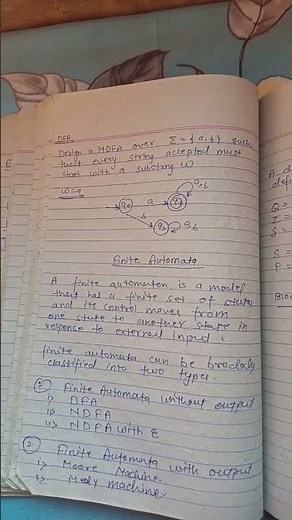 DFA
Design a MDFA over Σ = {a, b} such
that every string accepted must
start with a substring w
w=a
a, b
q0 a q1
b
q2 a, b
Finite Automata
A finite automaton is a model
that has a finite set of states
and its control moves from
one state to another state in
response to external input.
finite automata can be broadaly
classified into two types.
① Finite Automata without output
i> DFA
ii> NDFA
iii> NDFA with ε
② Finite Automata with output
i> Moore Machine
ii> Mealy machine
A
def
Q =
Σ =
δ =
S =
F =
Bloc